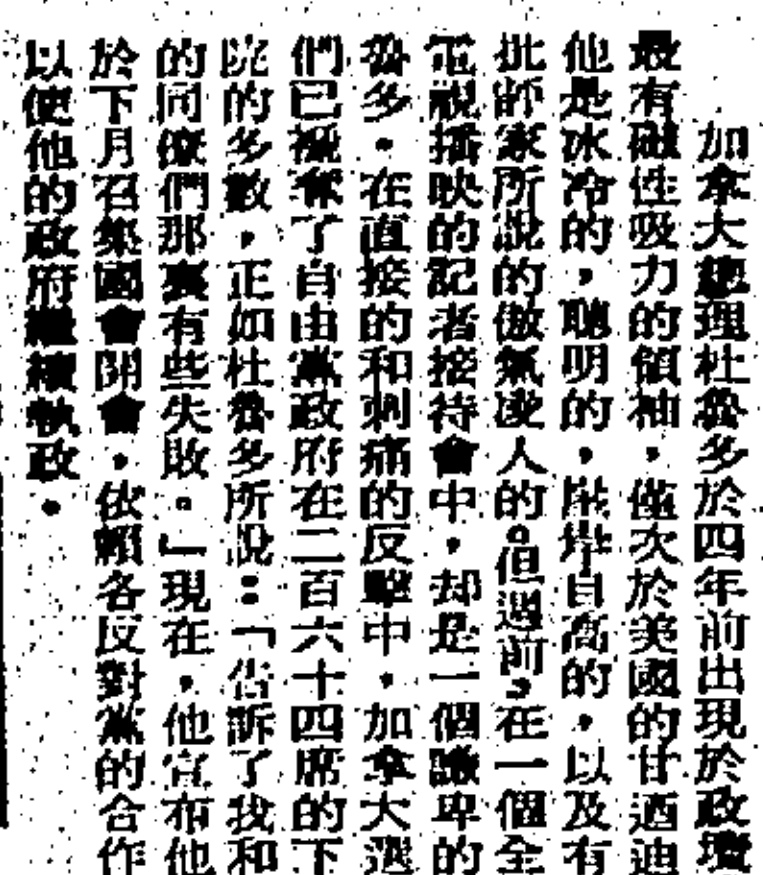 加拿大總理杜魯多於四年前出現於政壇
最有磁性吸力的領袖，僅次於美國的甘迺迪
他是冰冷的，聰明的，岸自高的，以及有
批評家所說的傲氣凌人的。但週前，在一個全
電視播映的記者接待會中，却是一個謙卑的
魯多。在直接的和刺痛的反擊中，加拿大選
們已褫奪了自由黨政府在二百六十四席的下
院的多數，正如杜魯多所說：「告訴了我和
的同僚們那裏有些失敗。」現在，他宣布他
於下月召集國會開會，依賴各反對黨的合作
以使他的政府繼續執政。